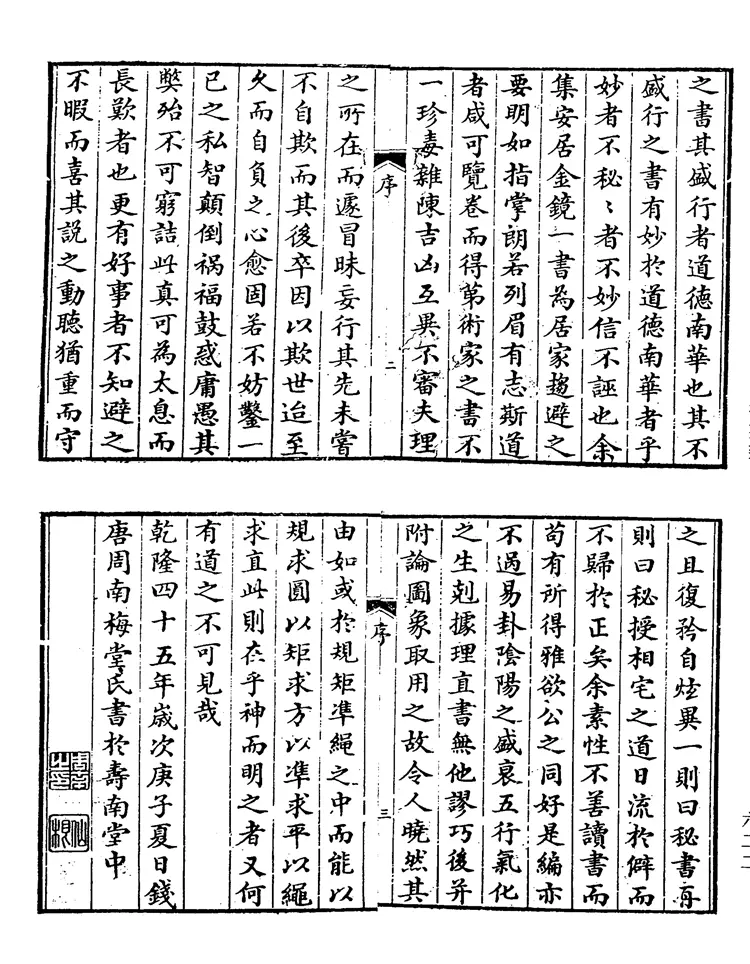 之書其盛行者道德南華也其不
盛行之書有妙於道德南華者乎
妙者不秘〻者不妙信不誣也余
集安居金鏡一書為居家趨避之
要明如指掌朗若列眉有志斯道
者咸可覽卷而得第術家之書不
一珍毒雜陳吉凶互異不審夫理
序
二
之所在而遽冒昧妄行其先未嘗
不自欺而其後卒因以欺世迨至
久而自負之心愈固若不妨鑿一
已之私智顛倒祸福鼓惑庸愚其
弊殆不可窮詰此真可為太息而
長歎者也更有好事者不知避之
不暇而喜其説之動聽猶重而守
之且復矜自炫異一則曰秘書再
則曰秘授相宅之道日流於僻而
不歸於正矣余素性不善讀書而
苟有所得雅欲公之同好是編亦
不過易卦陰陽之盛衰五行氣化
之生剋據理直書無他謬巧後并
附論圖象取用之故令人曉然其
序
三
由如或於規矩準繩之中而能以
規求圓以矩求方以準求平以繩
求直此則在乎神而明之者又何
有道之不可見哉
乾隆四十五年歲次庚子夏日錢
唐周南梅堂氏書於壽南堂中
周南
之印
六二二